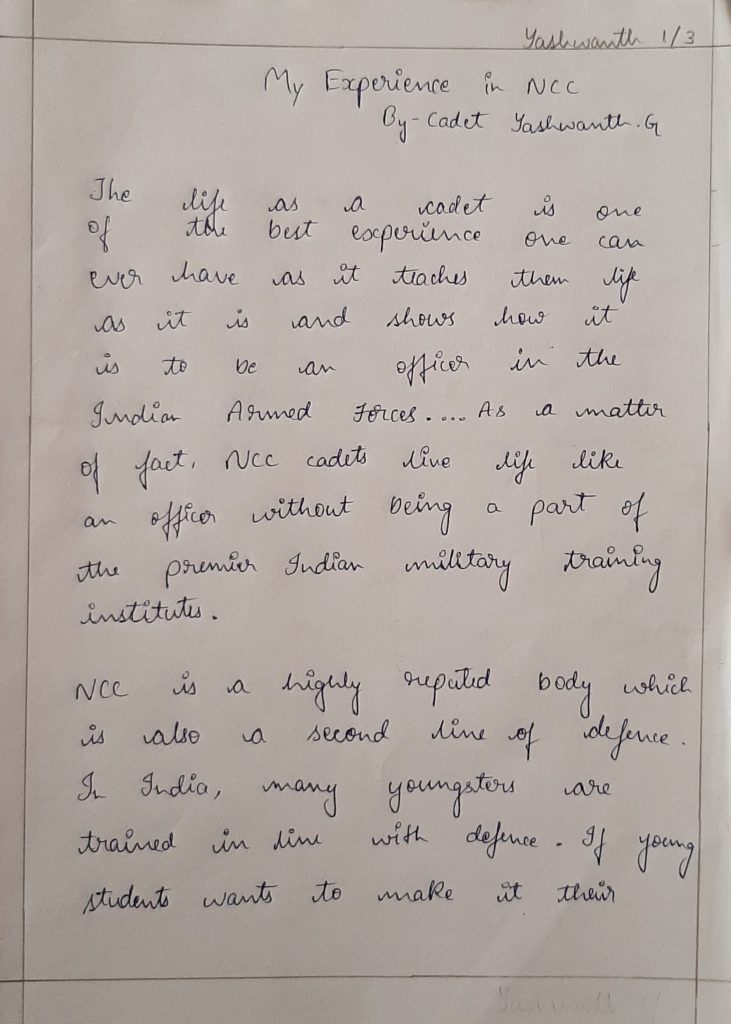 Yashwanth 1/3
My Experience in NCC
By-Cadet Yashwanth.G
The life as a cadet is one
of the best experience one can
ever have as it teaches them life
as it is and shows how it
is to be an officer in the
Indian Armed Forces.... As a matter
of fact, NCC cadets live life like
an officer without being a part of
the premier Indian military training
institutes.
NCC is a highly reputed body which
is also a second line of defence.
In India, many youngsters are
trained in line with defence. If young
students wants to make it their